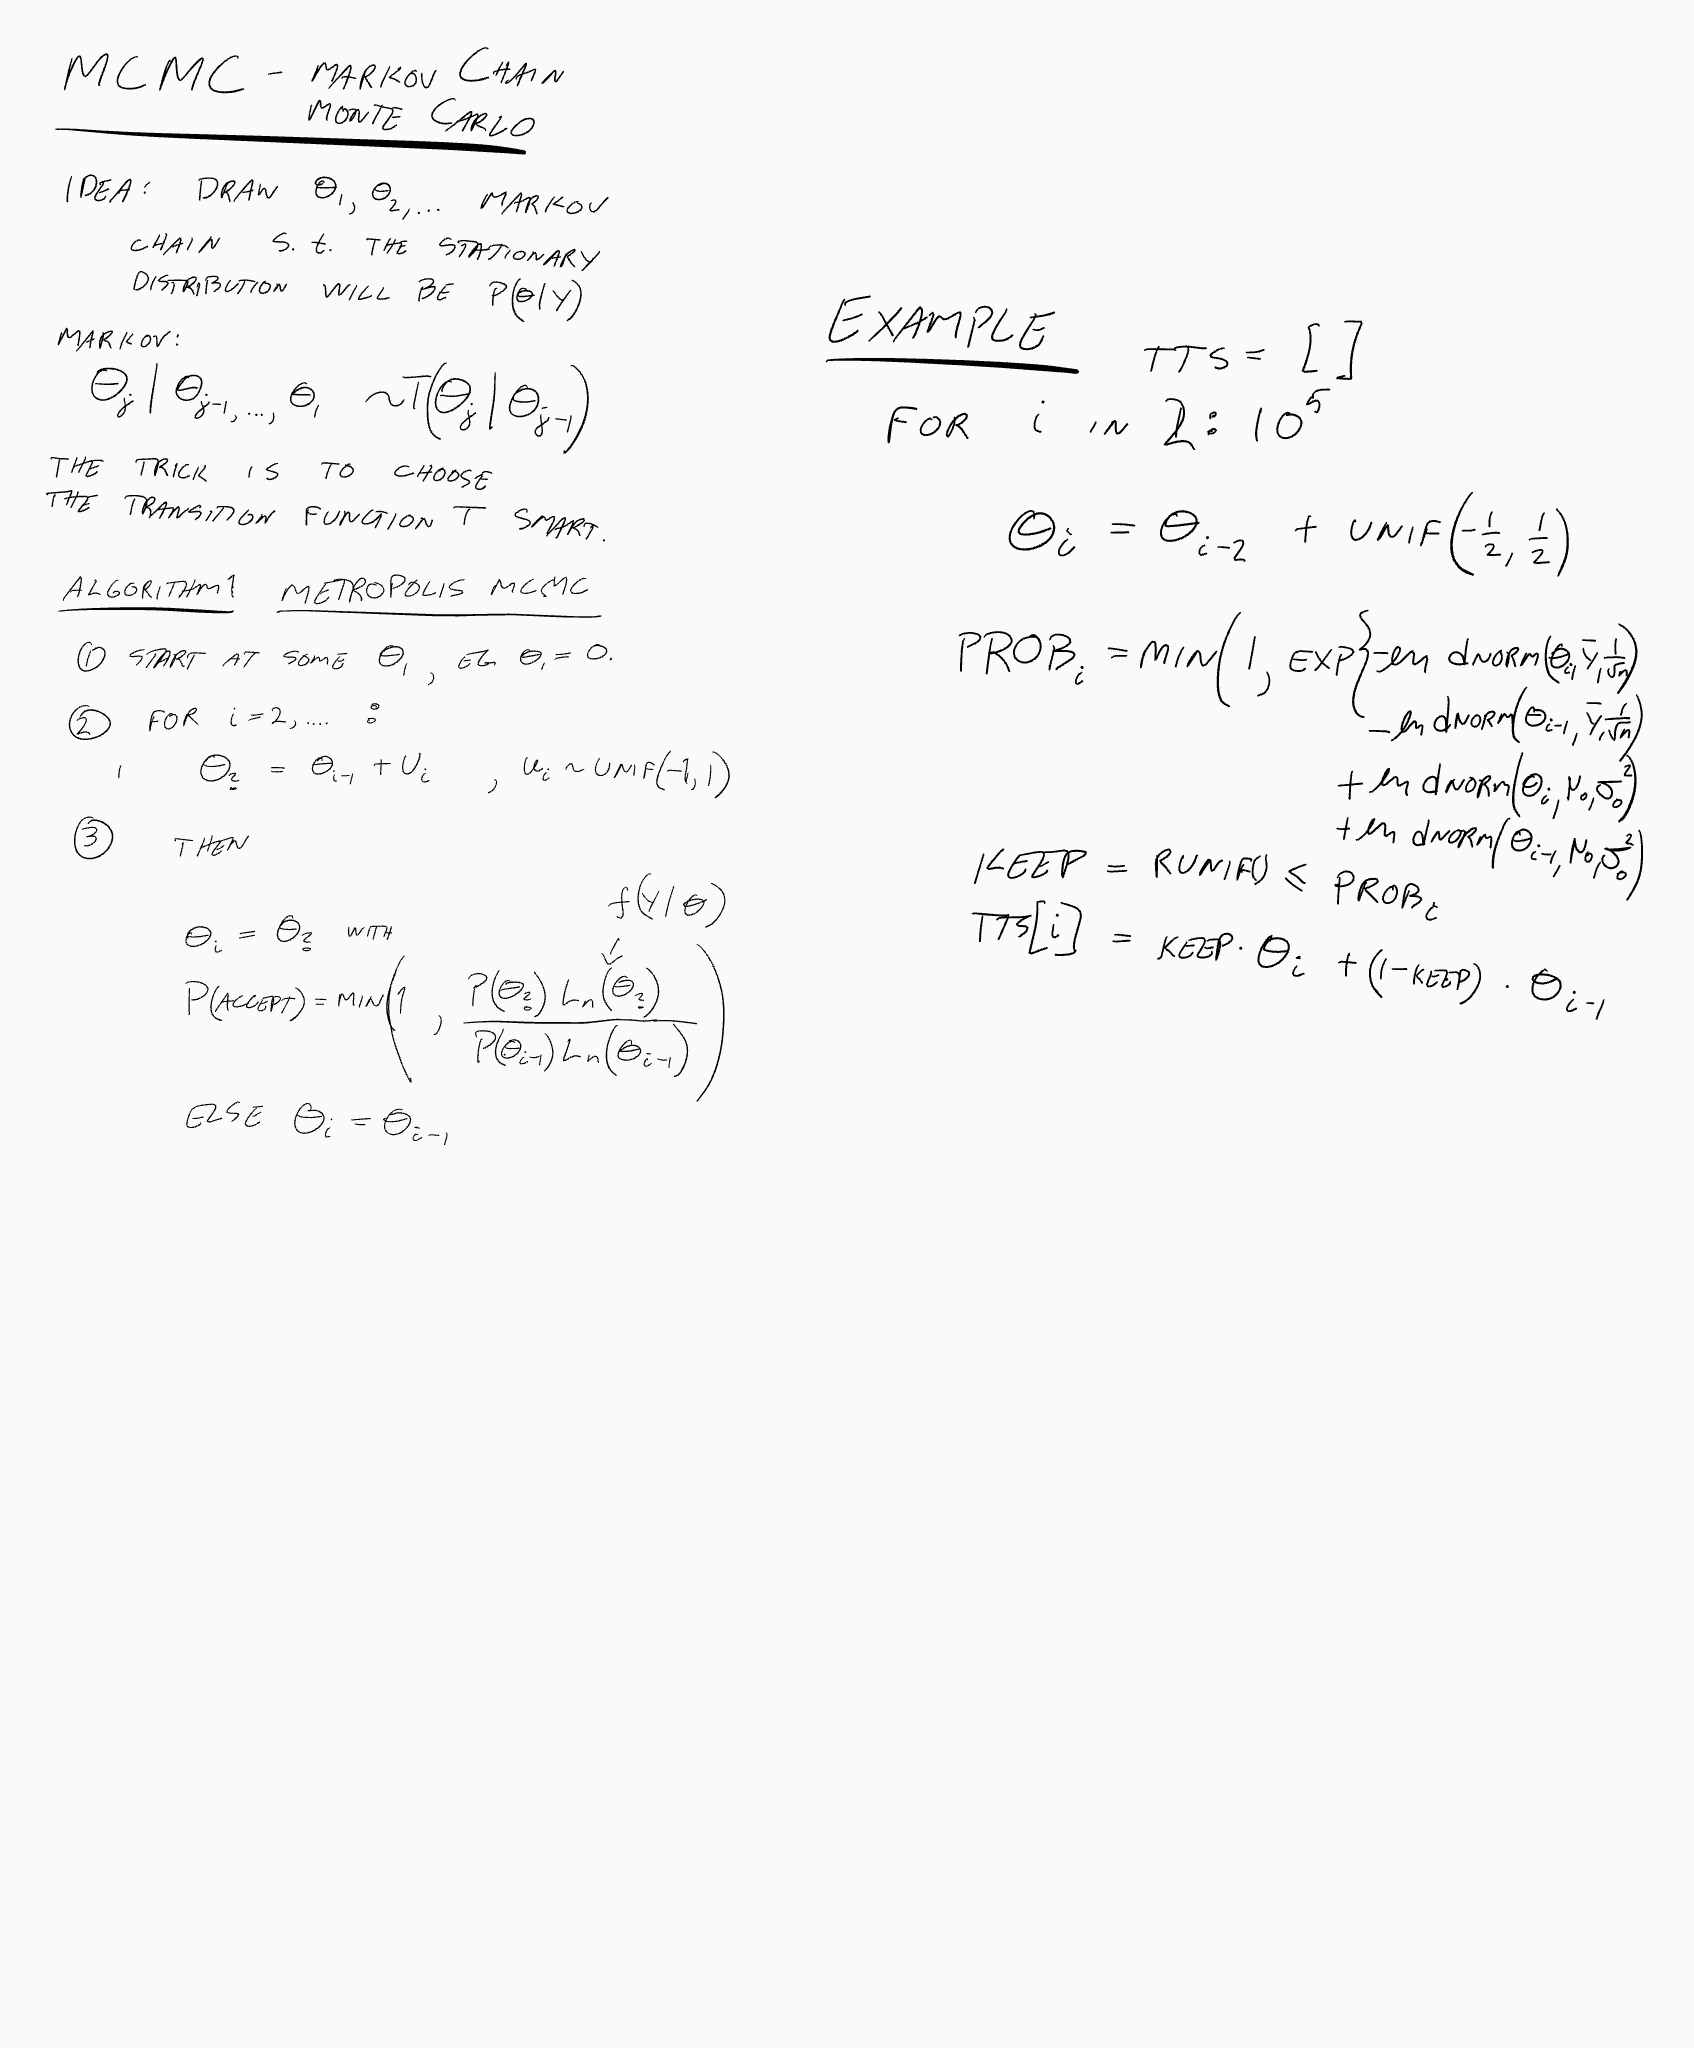 MCMC - MARKOV CHAIN
MONTE CARLO
IDEA: DRAW Θ₁, Θ₂,... MARKOV
CHAIN S.t. THE STATIONARY
DISTRIBUTION WILL BE P(Θ|Y)
MARKOV:
Θⱼ | Θⱼ₋₁, ..., Θ₁ ~T(Θⱼ | Θⱼ₋₁)
THE TRICK IS TO CHOOSE
THE TRANSITION FUNCTION T SMART.
ALGORITHM 1 METROPOLIS MCMC
① START AT SOME Θ₁, EG Θ₁ = 0.
② FOR i = 2, .... :
Θ_? = Θᵢ₋₁ + Uᵢ , uᵢ ~ UNIF(-1, 1)
③ THEN
f(Y|Θ)
Θᵢ = Θ_? WITH
↓
P(ACCEPT) = MIN(1, P(Θ_?) Ln(Θ_?) / P(Θᵢ₋₁) Ln(Θᵢ₋₁))
ELSE Θᵢ = Θᵢ₋₁
EXAMPLE TTS = [ ]
FOR i IN 2: 10⁵
Θᵢ = Θᵢ₋₂ + UNIF(-1/2, 1/2)
PROBᵢ = MIN(1, EXP{-ln dNORM(Θᵢ, Ȳ, 1/√n)
-ln dNORM(Θᵢ₋₁, Ȳ, 1/√n)
+ ln dNORM(Θᵢ, μ₀, σ₀²)
+ ln dNORM(Θᵢ₋₁, μ₀, σ₀²)
KEEP = RUNIF() ≤ PROBᵢ
TTS[i] = KEEP · Θᵢ + (1-KEEP) · Θᵢ₋₁